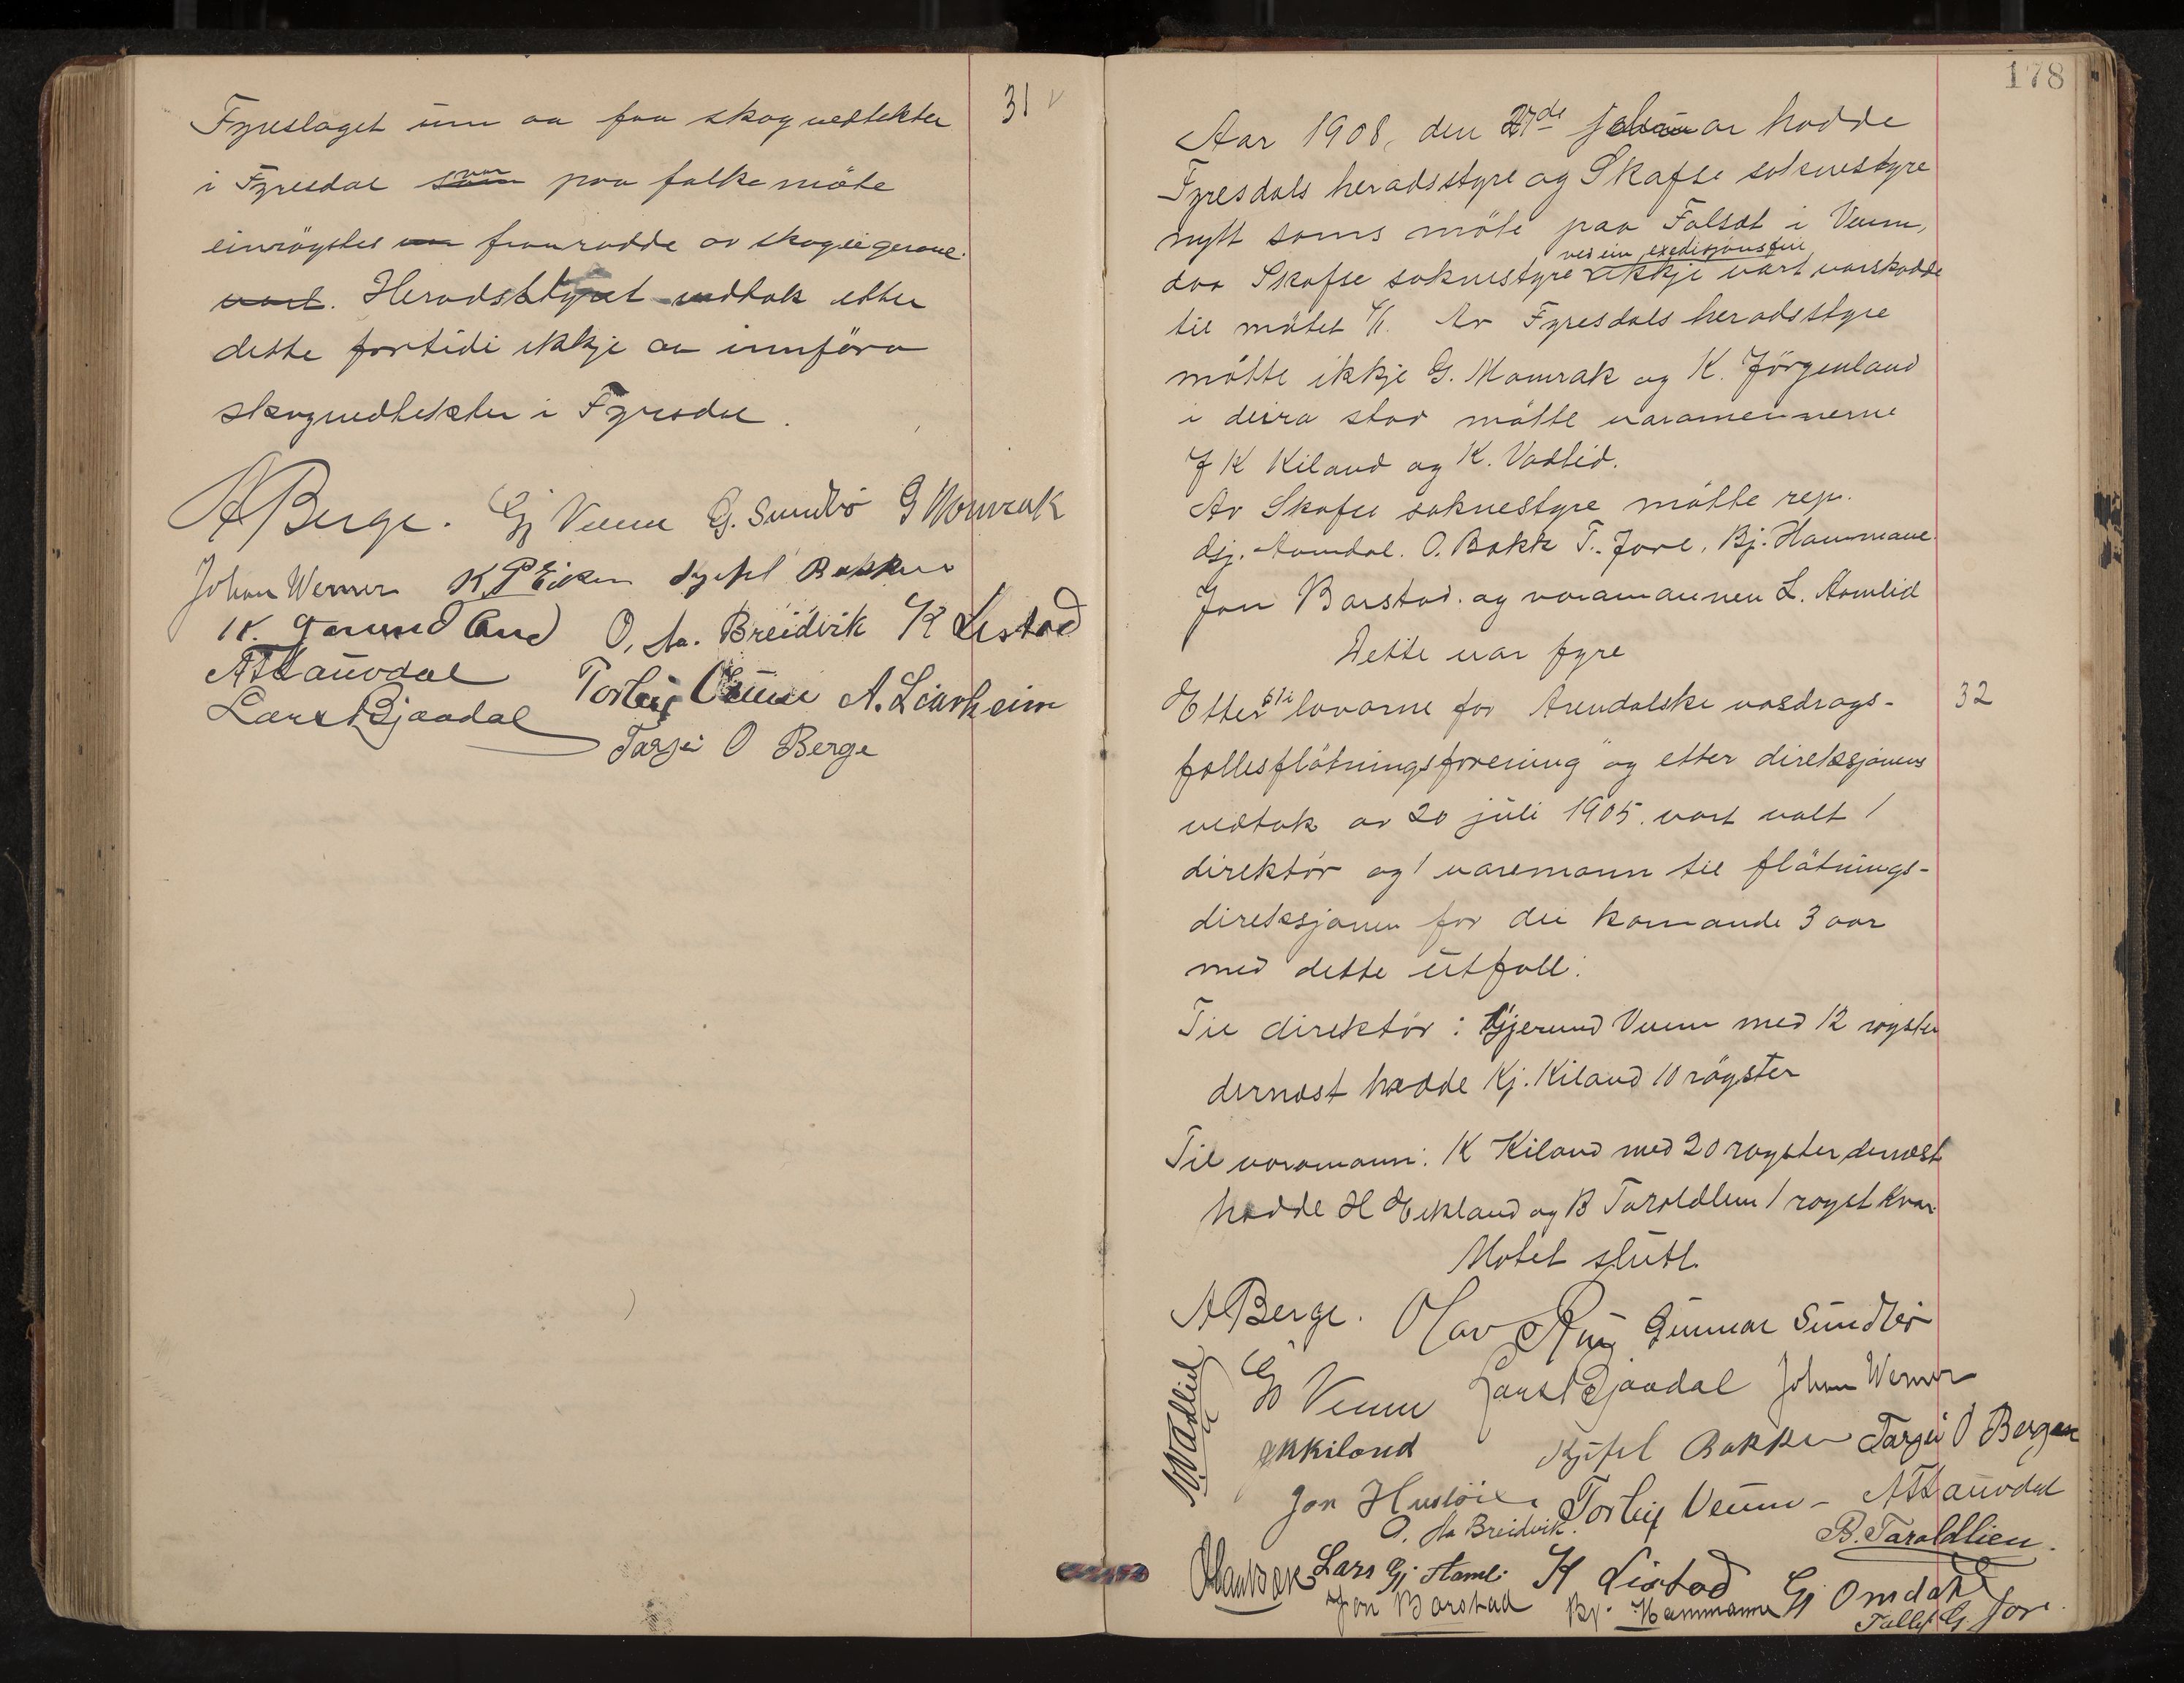 31
Fyreslaget um aa faa skogvedtekter
i Fyresdal var paa folkemöte
einröystes fraarødde av skogeigerane.
vart. Heradsstyret vedtok etter
dette fortidi ikkje aa innföra
skogvedtekter i Fyresdal.
A Berge. Gj Veum G. Sundbö G Momrak
Johan Werner K P Eiken Kjetil Bakken
K. O. Aa. Breidvik K Listad
A T Hauvdal Torleif Veum A. Leirheim
Lars Bjaadal
Tarjei O Berge
178
Aar 1908, den 27de februar hadde
Fyresdals heradsstyre og Skafse soknestyre
nytt sams möte paa Falsat i Veum,
ved ein expedisjonsfeil
daa Skafse soknestyre ikkje vart varskodde
til mötet 4/1. Av Fyresdals heradsstyre
mötte ikkje G. Momrak og K. Jörgenland
i deira stad mötte varamennerne
J K Kiland og K. Vadlid.
Av Skafse soknestyre mötte rep.
Gj. Aamdal. O. Bakk T. Jore, Bj. Hammane
Jon Barstad. og varamannen L. Aamlid
Dette var fyre
32
Etter lovarne for Arendalske vasdrags-
fællesflötningsforening og etter direksjonens
vedtak av 20 juli 1905. vart valt 1
direktör og 1 varemann til flötnings-
direksjonen for dei komande 3 aar
med dette utfall:
Til direktör: Gjerund Veum med 12 röyster
dernæst hadde Kj. Kiland 10 röyster
Til varamann: K Kiland med 20 røyster dernæst
hadde H Eikland og B Taraldlien 1 røyst kvar.
Møtet slutt.
A Berge. Olav Gunnar Sundbö
K. Vadlid
Gj Veum Lars Bjaadal Johan Werner
J K Kiland Kjetil Bakken Tarjei O Bergan
Jon Huslöi Torleif Veum - A T Hauvdal
O. Aa Breidvik. B. Taraldlien.
Olav Bak Lars Gj Aamli K Listad Gj Omdahl
Jon Barstad Bj. Hammane Tallef G. Jore.